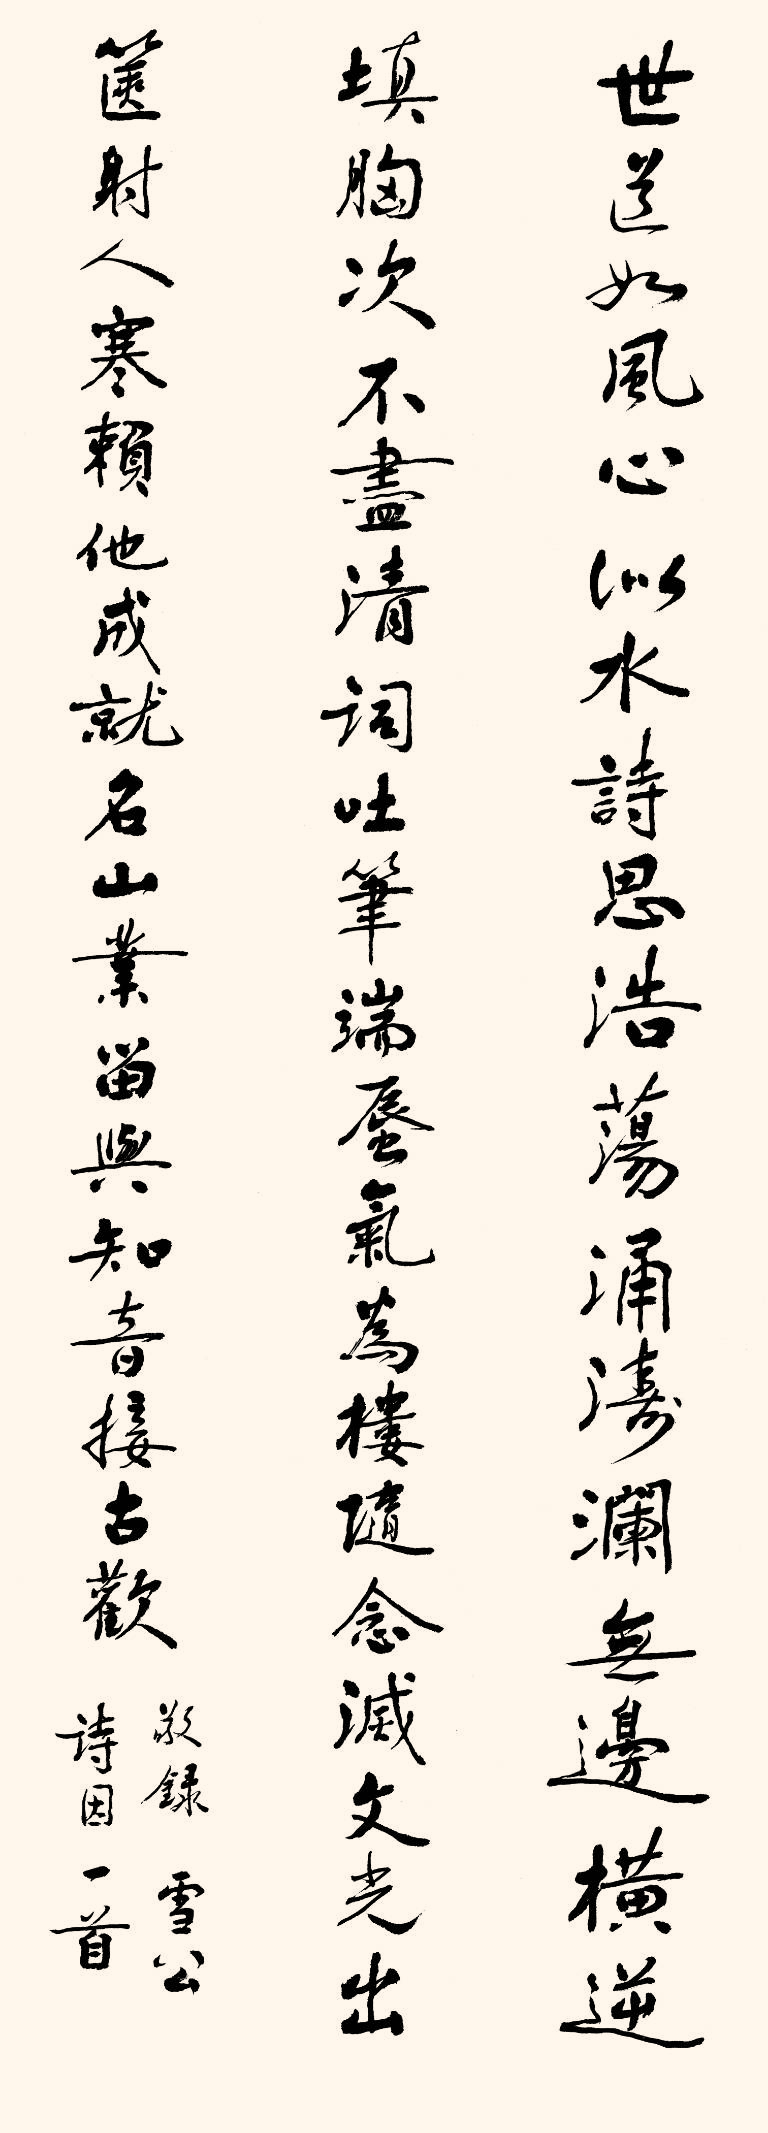 世道如風心似水詩思浩蕩涌濤瀾無邊橫逆
填胸次不盡清詞吐筆端蜃氣為樓隨念滅文光出
篋射人寒賴他成就名山業留與知音接古歡
敬録雪公
詩因一首